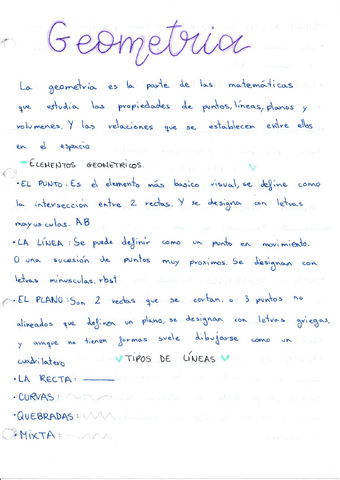 Geometria
La geometria es la parte de las matemáticas
que estudia las propiedades de puntos, líneas, planos y
volumenes. Y las relaciones que se establecen entre ellos
en el espacio
- ELEMENTOS GEOMETRICOS.
• EL PUNTO: Es el elemento más basico visual, se define como
la intersección entre 2 rectas. Y se designa con letras
mayusculas. AB
• LA LÍNEA: Se puede definir como un punto en movimiento.
O una sucesión de puntos muy proximos. Se designan con
letras minusculas, rbst
• EL PLANO: Son 2 rectas que se cortan, o 3 puntos no
alineados que definen un plano, se designan con letras griegas,
y aunque no tienen formas suele dibujarse como un
cuadrilatero
TIPOS DE LÍNEAS
• LA RECTA:
• CURVAS:
• QUEBRADAS:
• MIXTA: